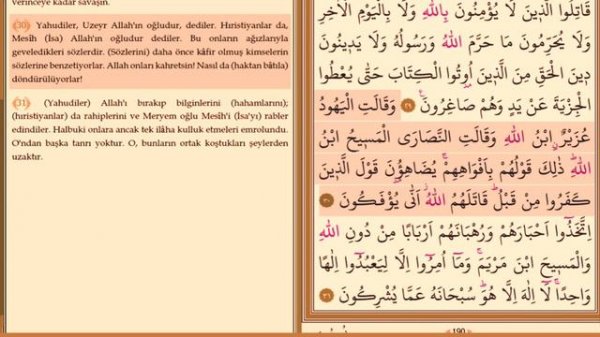 verinceye kadar savaşın.
(30) Yahudiler, Uzeyr Allah'ın oğludur, dediler. Hıristiyanlar da,
Mesîh (İsa) Allah'ın oğludur dediler. Bu onların ağızlarıyla
geveledikleri sözlerdir. (Sözlerini) daha önce kâfir olmuş kimselerin
sözlerine benzetiyorlar. Allah onları kahretsin! Nasıl da (haktan bâtıla)
döndürülüyorlar!
(31) (Yahudiler) Allah'ı bırakıp bilginlerini (hahamlarını);
(hıristiyanlar) da rahiplerini ve Meryem oğlu Mesîh'i (İsa'yı) rabler
edindiler. Halbuki onlara ancak tek ilâha kulluk etmeleri emrolundu.
O'ndan başka tanrı yoktur. O, bunların ortak koştukları şeylerden
uzaktır.
قَاتِلُوا الَّذٖينَ لَا يُؤْمِنُونَ بِاللّٰهِ وَلَا بِالْيَوْمِ الْاٰخِرِ
وَلَا يُحَرِّمُونَ مَا حَرَّمَ اللّٰهُ وَرَسُولُهُ وَلَا يَدٖينُونَ
دٖينَ الْحَقِّ مِنَ الَّذٖينَ اُوتُوا الْكِتَابَ حَتّٰى يُعْطُوا
الْجِزْيَةَ عَنْ يَدٍ وَهُمْ صَاغِرُونَ ﴿٢٩﴾ وَقَالَتِ الْيَهُودُ
عُزَيْرٌ ابْنُ اللّٰهِ وَقَالَتِ النَّصَارَى الْمَسٖيحُ ابْنُ
اللّٰهِ ذٰلِكَ قَوْلُهُمْ بِاَفْوَاهِهِمْ يُضَاهِؤُنَ قَوْلَ الَّذٖينَ
كَفَرُوا مِنْ قَبْلُ قَاتَلَهُمُ اللّٰهُ اَنّٰى يُؤْفَكُونَ ﴿٣٠﴾
اِتَّخَذُٓوا اَحْبَارَهُمْ وَرُهْبَانَهُمْ اَرْبَابًا مِنْ دُونِ اللّٰهِ
وَالْمَسٖيحَ ابْنَ مَرْيَمَ وَمَٓا اُمِرُٓوا اِلَّا لِيَعْبُدُٓوا اِلٰهًا
وَاحِدًا لَٓا اِلٰهَ اِلَّا هُوَ سُبْحَانَهُ عَمَّا يُشْرِكُونَ ﴿٣١﴾
190